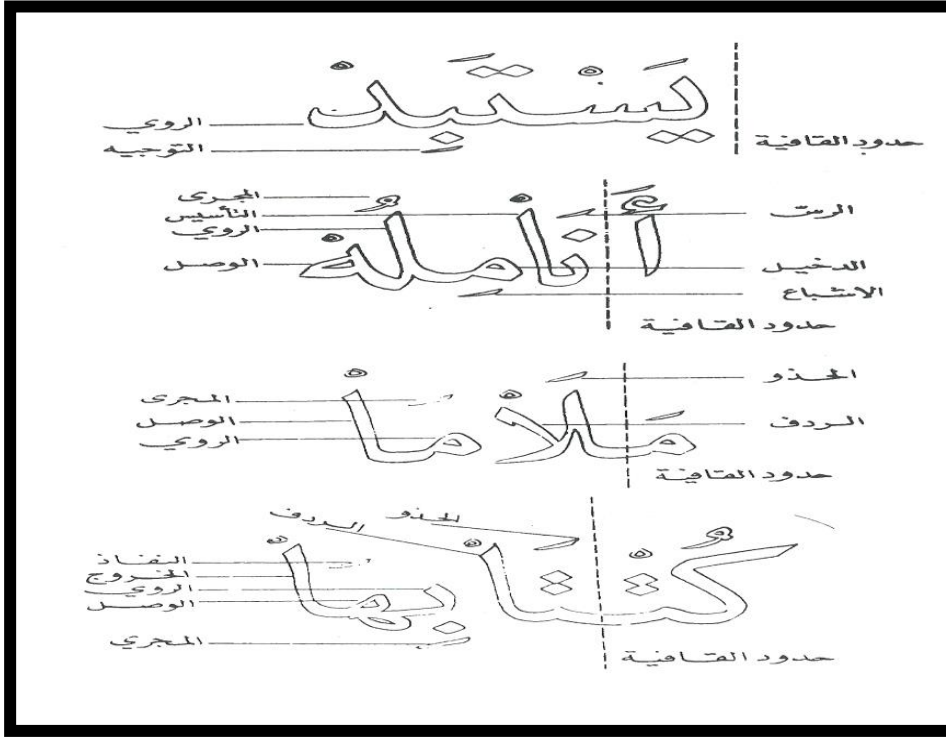 يَسْتَبِنْ
الروي
التوجيه
حدود القافية
أَنَامِلُهْ
المجرى
التأسيس
الروي
الوصل
الرس
الدخيل
الاشباع
حدود القافية
مَلَاْمَاْ
المجرى
الوصل
الروي
الحذو
الردف
حدود القافية
كُتْتَاْبِهَاْ
الحذو
الردف
النفاذ
الخروج
الروي
الوصل
المجري
حدود القافية